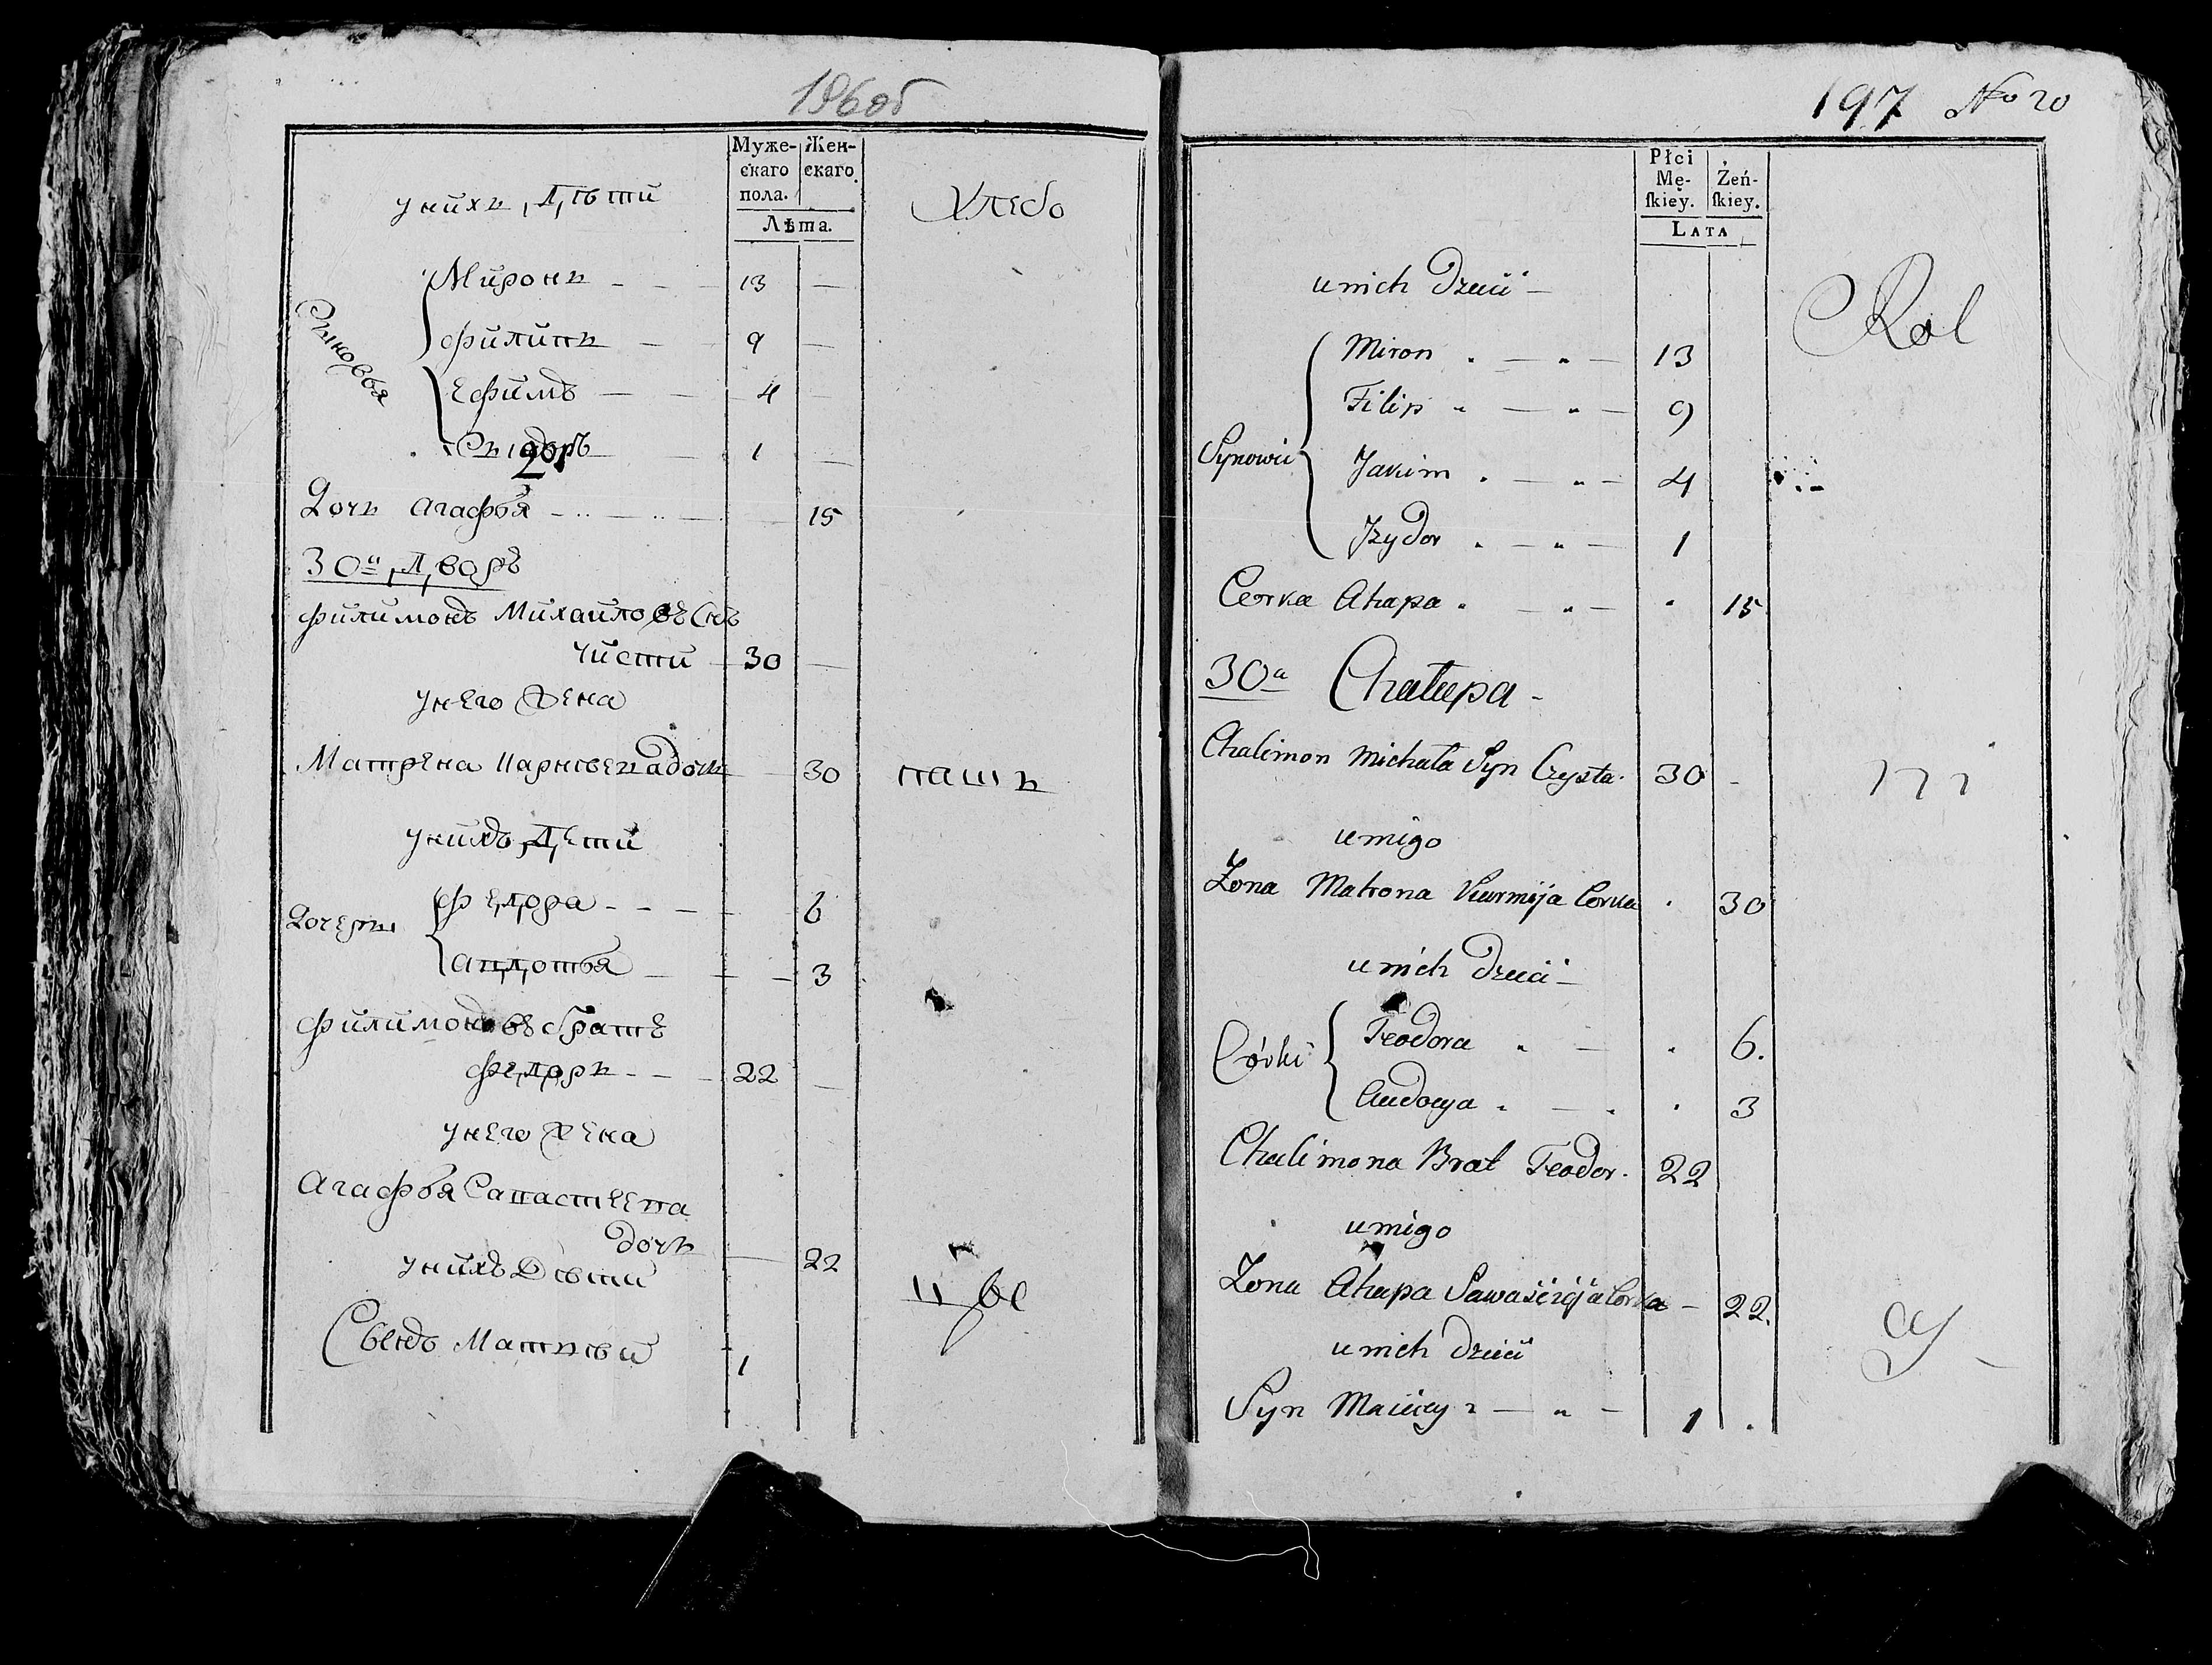 196об
Муже-
скаго
пола.
Жен-
скаго.
Лѣта.
у нихъ дѣти
Хлебо
Сыновья
Миронъ - - - 13 —
Филипъ — — 9 —
Ефимъ — — 4 —
Сидоръ — 1 —
Дочь Агафья — 15
30й дворъ
Филимонъ Михайловъ снъ
Чисти — 30 —
у него жена
Матрена дочь — 30
пашъ
у нихъ дети
Дочери
Федора - - - 6
Авдотья — — 3
Филимоновъ братъ
Федоръ - - - 22 —
у него жена
Агафья
дочь — 22
у нихъ дѣти
Сынъ Матвѣй 1
197 No 20
Płci
Mę-
ſkiey.
Żeń-
ſkiey.
LATA
u nich Dzieci —
Rol
Synowie
Miron . — " — 13
Filip " — " — 9
Jakim . — " — 4
Jzydor . — " — 1
Corka Ahapa . — " — . 15
30a Chałupa -
Chalimon Michała Syn Czysta . 30 -
u niego
Zona Matrona Corka . 30
u nich dzieci —
Córki
Teodora " — . 6.
Audocya . — . . 3
Chalimona Brat Teodor . 22
u niego
Zona Ahapa Corka — 22.
u nich dzieci
Syn Maciey " — " — 1 .